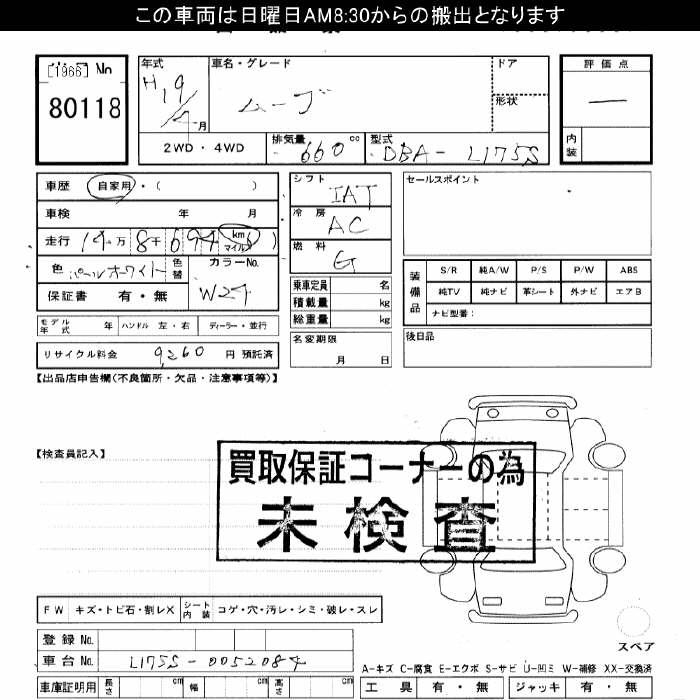 この車両は日曜日AM8:30からの搬出となります
[1966] No
80118
年式
H19
4月
車名・グレード
ムーブ
ドア
形状
評価点
—
内装
2WD・4WD
排気量 660 cc
型式 DBA- L175S
車歴 自家用・( )
車検 年 月
走行 14万8千694 km マイル
色 パールホワイト 色替
カラーNo.
W24
保証書 有・無
モデル年式 年 ハンドル 左・右 ディーラー・並行
リサイクル料金 9,260 円 預託済
シフト
IAT
冷房
AC
燃料
G
乗車定員 名
積載量 kg
総重量 kg
名変期限
月 日
セールスポイント
装備品
S/R 純A/W P/S P/W ABS
純TV 純ナビ 革シート 外ナビ エアB
ナビ型番:
後日品
【出品店申告欄(不良箇所・欠品・注意事項等)】
【検査員記入】
買取保証コーナーの為
未検査
FW キズ・トビ石・割レX シート内装 コゲ・穴・汚レ・シミ・破レ・スレ
登録No.
車台No. L175S-0052084
車庫証明用 長さ cm 幅 cm 高さ cm
スペア
A-キズ C-腐食 E-エクボ S-サビ U-凹ミ W-補修 XX-交換済
工具 有・無 ジャッキ 有・無